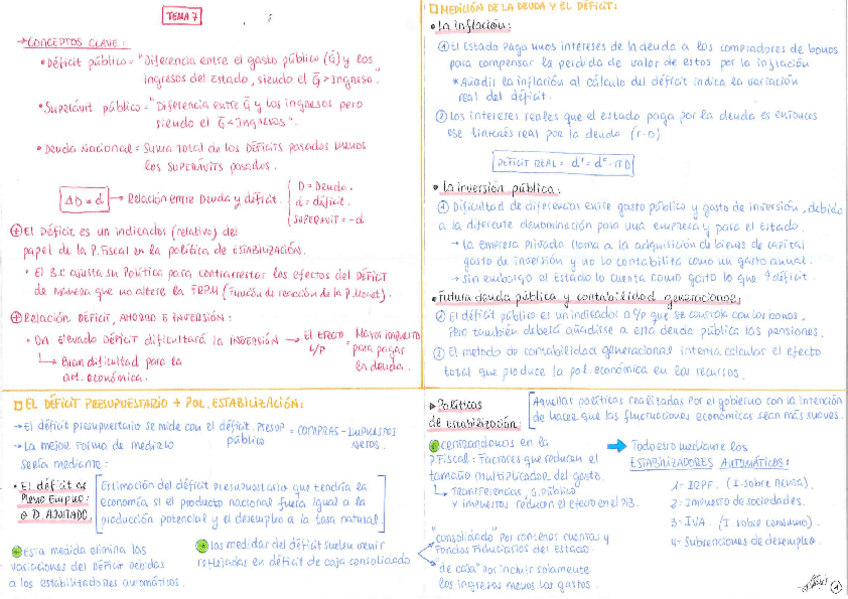 TEMA 7
→ CONCEPTOS CLAVE:
• Déficit público = "Diferencia entre el gasto público (G̅) y los
ingresos del estado, siendo el G̅ > Ingreso."
• Superávit público = "Diferencia entre G̅ y los ingresos pero
siendo el G̅ < Ingresos".
• Deuda Nacional = Suma total de los DÉFICITS pasados menos
los SUPERÁVITS pasados.
ΔD = d → Relación entre Deuda y déficit.
D = Deuda.
d = déficit.
SUPERAVIT = -d
El Déficit es un indicados (relativo) del
papel de la P. Fiscal en la política de ESTABILIZACIÓN.
• El B.C ajusta su Política para contrarrestar los efectos del DÉFICIT
de manera que no altere la FRPM (Función de reacción de la P. Monet).
Relación DÉFICIT, AHORRO E INVERSIÓN:
• Un elevado DÉFICIT dificultará la INVERSIÓN → El EFECTO L/P = Mayor impuesto
para pagar
la deuda.
↳ Gran dificultad para la
act. económica.
MEDICIÓN DE LA DEUDA Y EL DÉFICIT:
• La inflación:
① El Estado paga unos intereses de la deuda a los compradores de bonos
para compensar la perdida de valor de estos por la inflación
* Añadir la inflación al cálculo del déficit indica la variación
real del déficit.
② Los intereses reales que el estado paga por la deuda es entonces
ese interés real por la deuda (r·D)
DÉFICIT REAL =
• La inversión pública:
① Dificultad de diferenciar entre gasto público y gasto de inversión, debido
a la diferente denominación para una empresa y para el Estado.
→ La empresa privada llama a la adquisición de bienes de capital
gasto de inversión y no lo contabiliza como un gasto anual.
→ Sin embargo el Estado lo cuenta como gasto lo que ↑ déficit.
• Futura deuda pública y contabilidad generacional:
El déficit público es un indicador a c/p que se controla con los bonos.
Pero también deberá añadirse a esta deuda pública las pensiones.
El metodo de contabilidad generacional intenta calcular el efecto
total que produce la pol. económica en los recursos.
EL DÉFICIT PRESUPUESTARIO + POL. ESTABILIZACIÓN:
→ El déficit presupuestario se mide con el déficit. Presup
público = COMPRAS - IMPUESTOS
NETOS.
→ La mejor forma de medirlo
sería mediante:
• El déficit de
Pleno Empleo:
o D. AJUSTADO.
Estimación del déficit presupuestario que tendría la
economía si el producto nacional fuera igual a la
producción potencial y el desempleo a la tasa natural.
Esta medida elimina las
variaciones del Déficit debidas
a los estabilizadores automáticos.
Las medidas del déficit suelen venir
reflejadas en déficit de caja consolidado
"consolidado" por censos cuentas y
Fondos Fiduciarios del Estado.
"de caja" por incluir solamente
los ingresos menos los gastos.
Políticas
de estabilización:
Aquellas políticas realizadas por el gobierno con la intención
de hacer que las fluctuaciones económicas sean más suaves.
Centrandonos en la
P. Fiscal: Factores que reducen el
tamaño multiplicador del gasto.
↳ Transferencias, G. Público
y impuestos reducen el efecto en el PIB.
Todo esto mediante los
ESTABILIZADORES AUTOMÁTICOS:
1- IRPF. (I. sobre Renta).
2- Impuesto de sociedades.
3- IVA. (I. sobre consumo).
4- Subvenciones de desempleo.